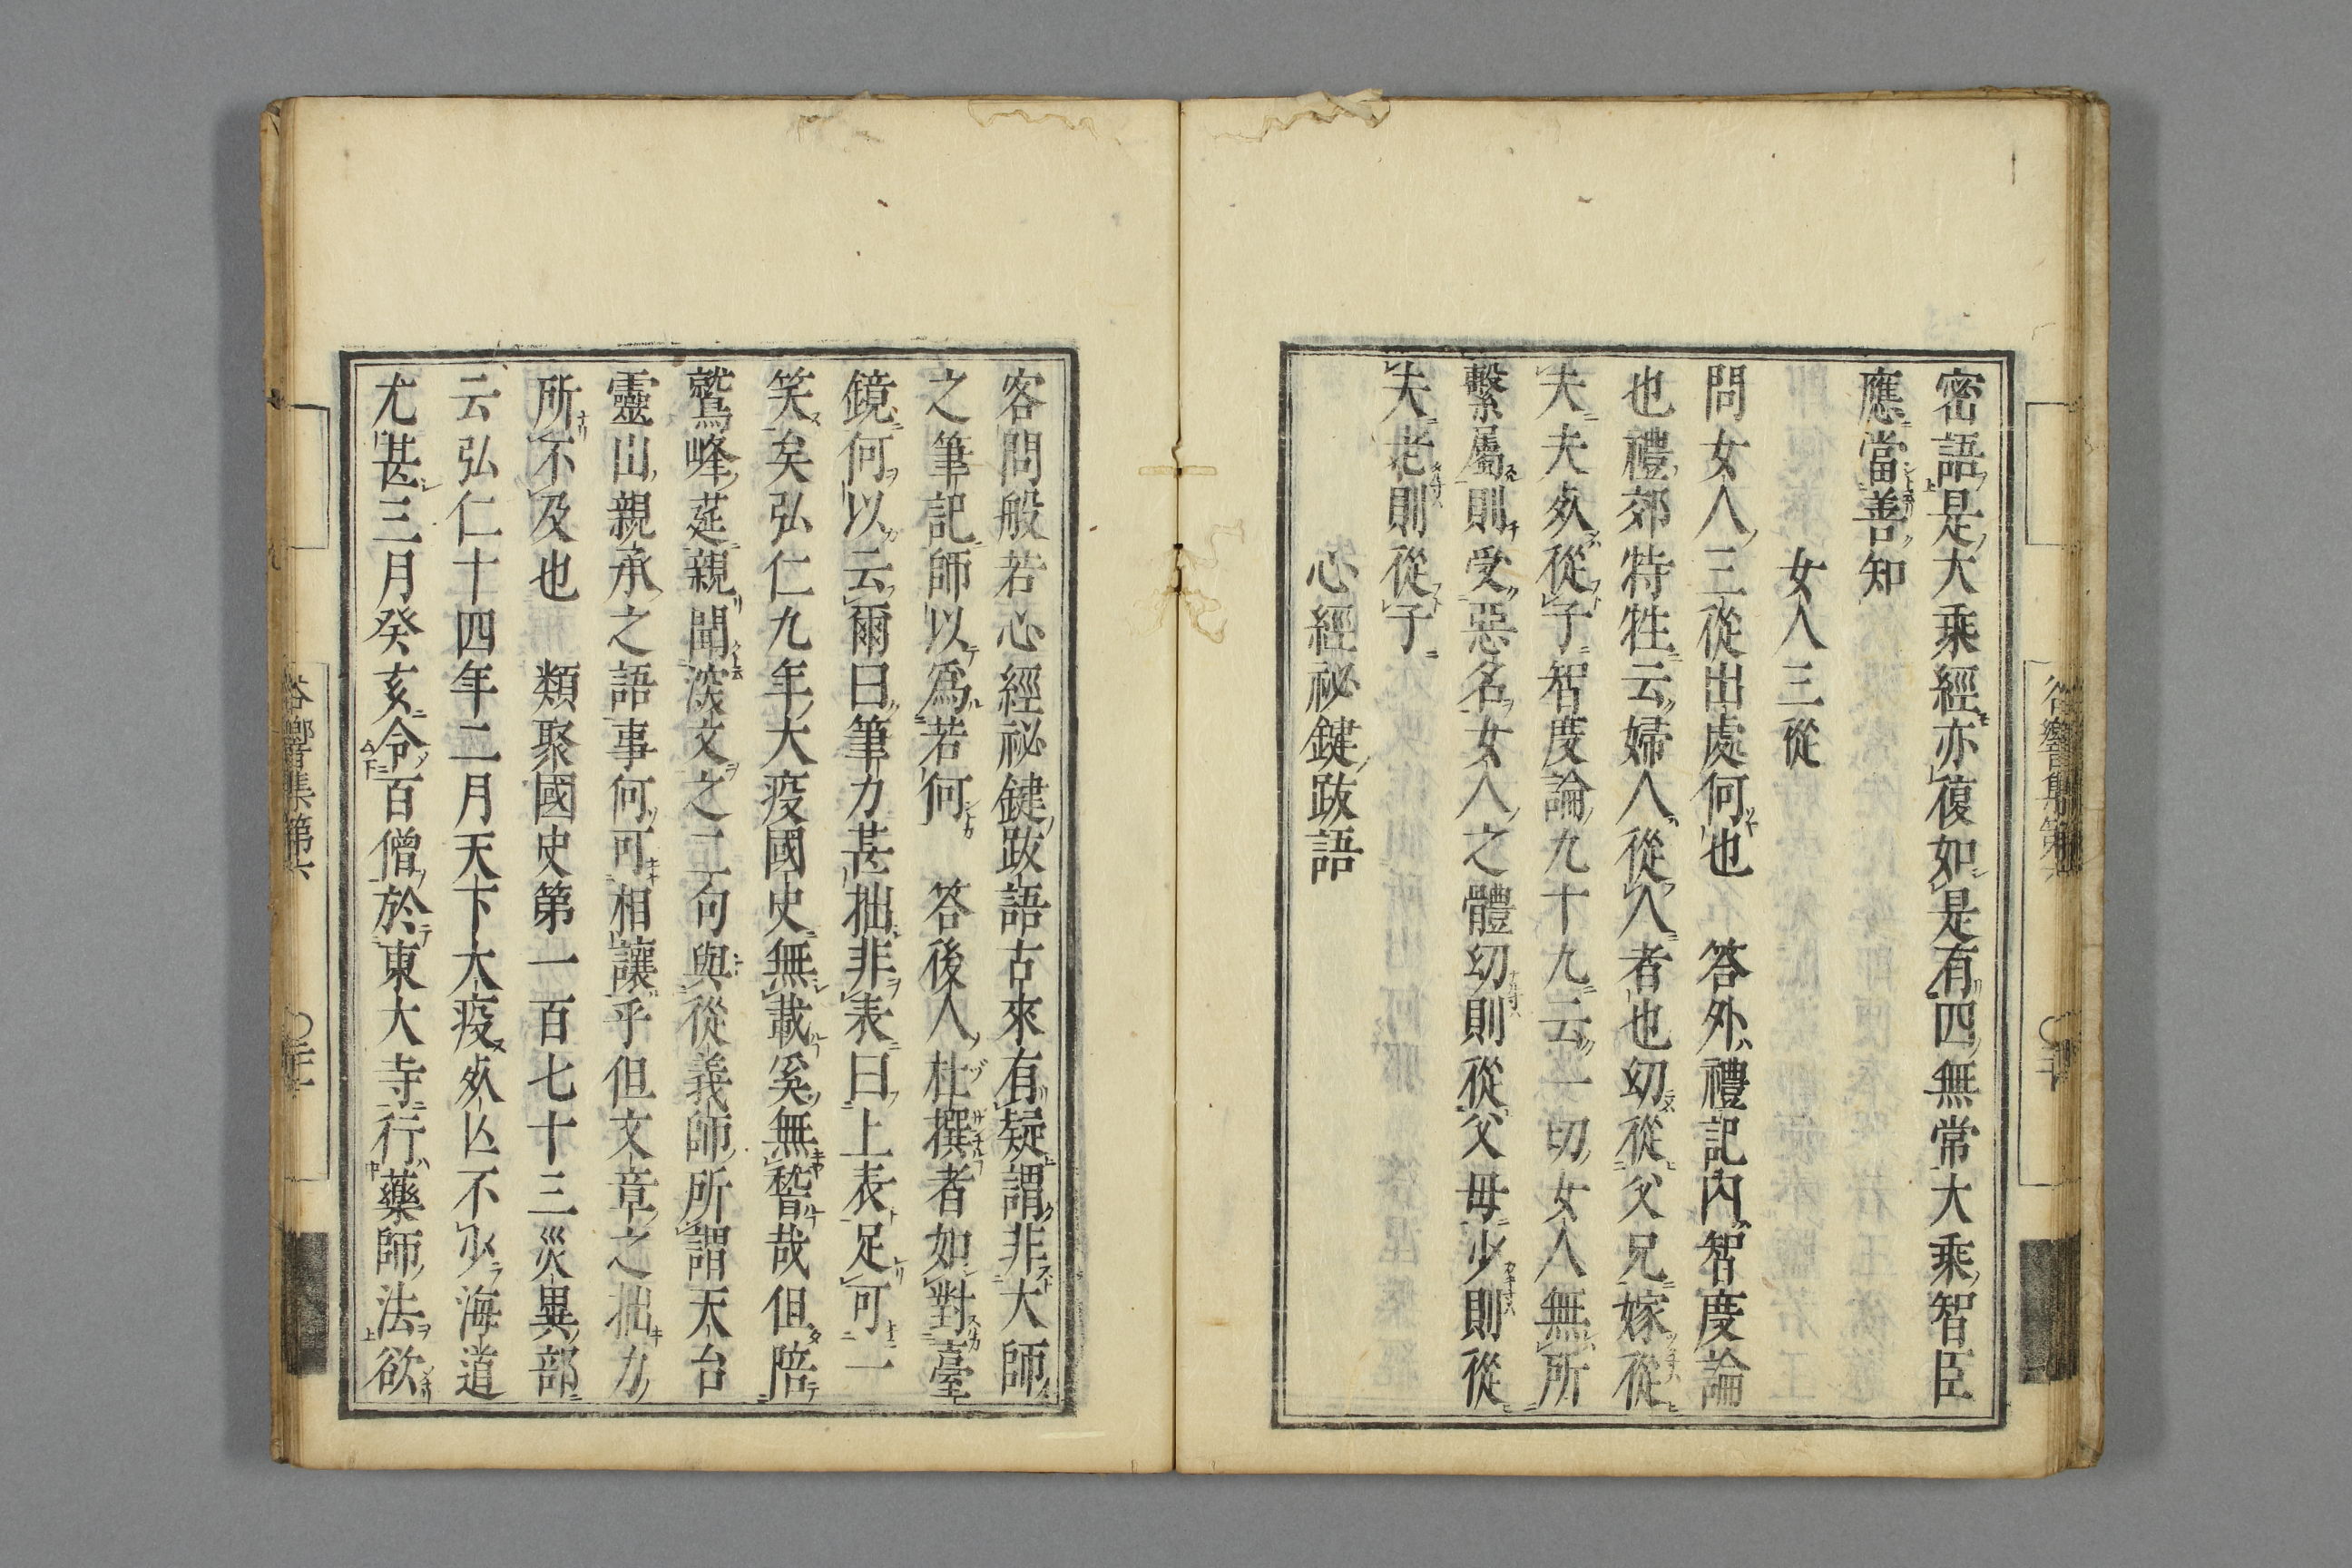 密語是大乘經亦復如是有四無常大乘智臣
應當善知
女人三從
問女人三從出處何也　答外禮記內智度論
也禮郊特牲云婦人從人者也幼從父兄嫁從
夫夫死從子智度論九十九云一切女人無所
繫屬則受惡名女人之體幼則從父母少則從
夫老則從子
心經祕鍵跋語
客問般若心經祕鍵跋語古來有疑謂非大師
之筆記師以爲若何　答後人杜撰者如對臺
鏡何以云爾曰筆力甚拙非表曰上表足可一
笑矣弘仁九年大疫國史無載奚無稽哉但陪
鷲峰莚親聞深文之二句與從義師所謂天台
靈山親承之語事何可相讓乎但文章之拙力
所不及也　類聚國史第一百七十三災異部
云弘仁十四年二月天下大疫死亡不少海道
尤甚三月癸亥令百僧於東大寺行藥師法欲
谷響集第六